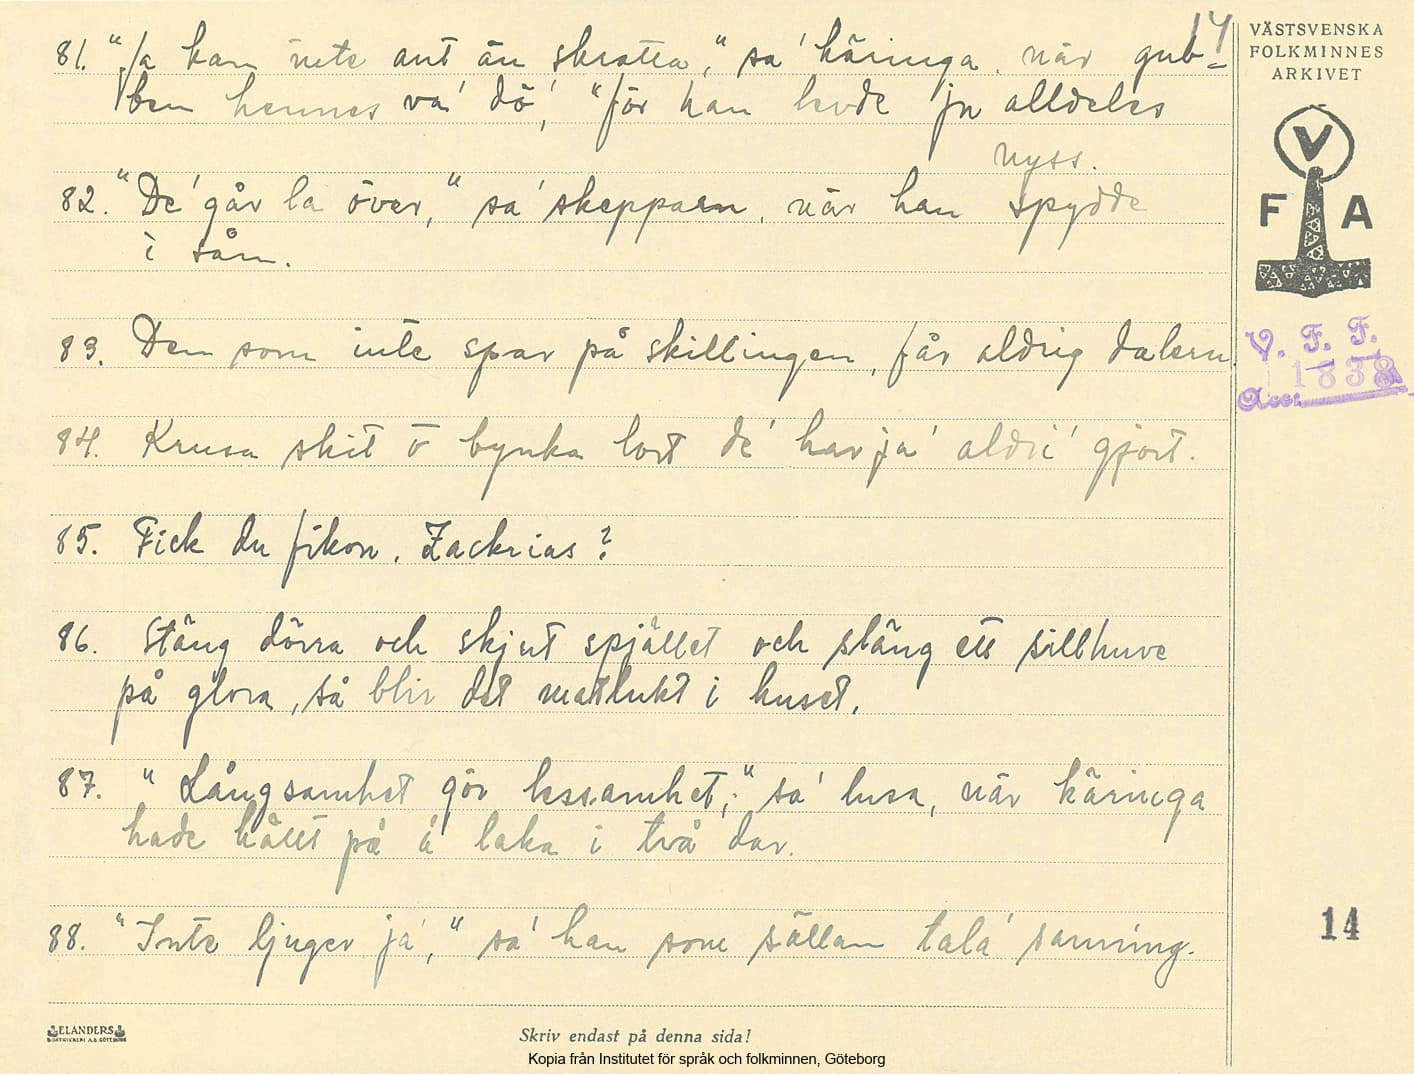 14
VÄSTSVENSKA
FOLKMINNES
ARKIVET
V
F A
V. F. F.
1838
Acc.
81. "Ja kan inte ant än skratta," sa' käringa, när gub-
ben hennes va' dö', "för han levde ju alldeles
nyss.
82. "De' går la över," sa' skepparn, när han spydde
i sån.
83. Den som inte spar på skillingen, får aldrig dalern
84. Krusa skit ö bynka lort de' har ja' aldri' gjort.
85. Fick du fikon, Zackrias?
86. Stäng dörra och skjut spjället och släng ett sillhuve
på glora, så blir det matlukt i huset.
87. "Långsamhet gör lessamhet," sa' lusa, när käringa
hade hållt på å laka i två dar.
88. "Inte ljuger ja'," sa' han som sällan tala' sanning.
14
ELANDERS
BOKTRYCKERI A.B. GÖTEBORG
Skriv endast på denna sida!
Kopia från Institutet för språk och folkminnen, Göteborg